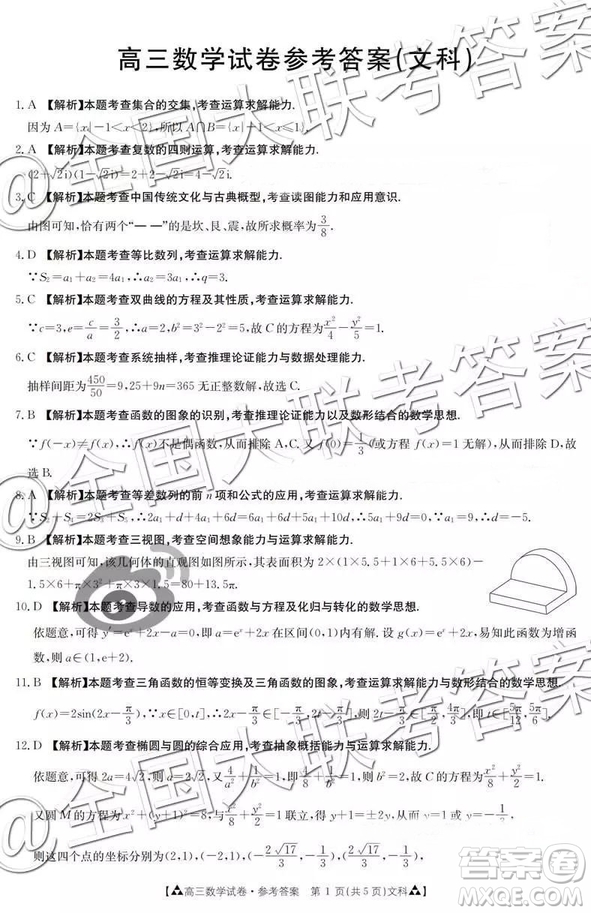 高三数学试卷参考答案(文科)
1. A 【解析】本题考查集合的交集,考查运算求解能力.
因为A={x|-1<x<2},所以A∩B={x|-1<x≤1}.
2. A 【解析】本题考查复数的四则运算,考查运算求解能力.
(2+√2i)(1-√2i)=2-√2i+2=4-√2i.
3. C 【解析】本题考查中国传统文化与古典概型,考查读图能力和应用意识.
由图可知,恰有两个“— —”的是坎、艮、震,故所求概率为3/8.
4. D 【解析】本题考查等比数列,考查运算求解能力.
∵S₂=a₁+a₂=4a₁,∴a₂=3a₁,∴q=3.
5. C 【解析】本题考查双曲线的方程及其性质,考查运算求解能力.
∵c=3,e=c/a=3/2,∴a=2,b²=3²-2²=5,故C的方程为x²/4-y²/5=1.
6. C 【解析】本题考查系统抽样,考查推理论证能力与数据处理能力.
抽样间距为450/50=9,25+9n=365无正整数解.
7. B 【解析】本题考查函数的图象的识别,考查推理论证能力以及数形结合的数学思想.
∵f(-x)≠f(x),∴f(x)不是偶函数,从而排除A,C.又
选B.
8. A 【解析】本题考查等差数列的前n项和公式的应用,考查运算求解能力.
∵S₂+S₄=2S₅,∴2a₁+d+4a₁+6d=6a₁+7d=2(5a₁+10d)=10a₁+20d.
9. B 【解析】本题考查三视图,考查空间想象能力与运算求解能力.
由三视图可知,该几何体的直观图如图所示,其表面积为2×(1×5.5+1×6+5.5×6)-
1.5×6+π×3²+π×1.5=80+13.5π.
10. D 【解析】本题考查导数的应用,考查函数与方程及化归与转化的数学思想.
依题意,可得y′=eˣ+2x-a=0,即a=eˣ+2x在区间(0,1)内有解.设g(x)=eˣ+2x,易得
a∈(1,e+2).
11. B 【解析】本题考查三角函数的恒等变换及三角函数的图象,考查运算求解能力与数形结合的数学思想.
f(x)=2sin(2x-π/3),∵x∈[0,t],∴2x-π/3∈[-π/3,2t-π/3],
12. D 【解析】本题考查椭圆与圆的综合应用,考查抽象概括能力与运算求解能力.
依题意,可得2a=4√2,即a=2√2,又4/a²+1/b²=1,所以b²=2,从而C的方程为x²/8+y²/2=1.
又圆M的方程为x²+(y+1)²=8,与x²/8+y²/2=1联立,
则这四个点的坐标分别为(2,1),(-2,1),(2√17/3,-1/3),(-2√17/3,-1/3),
高三数学试卷·参考答案 第1页(共5页)文科
@全国大联考答案
答案圈
MXQE.COM